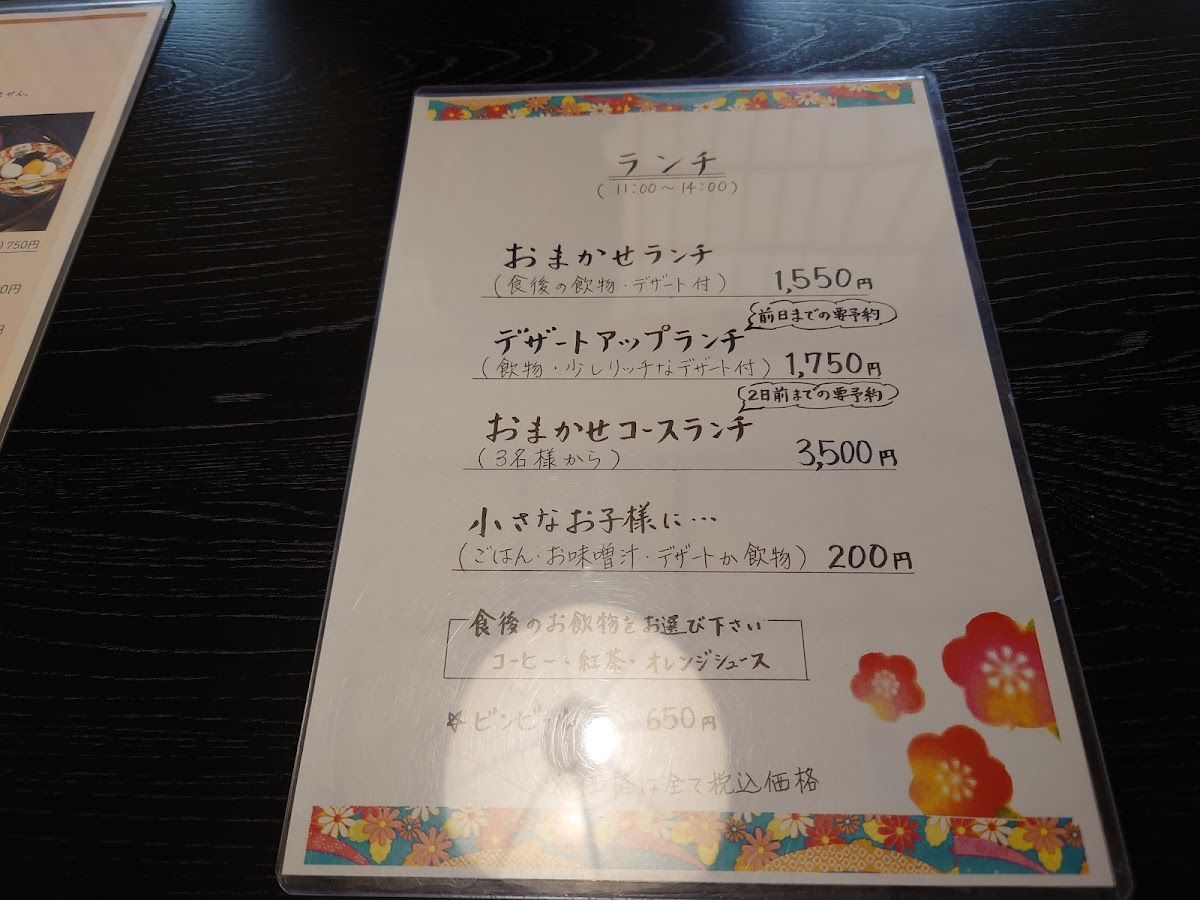 ません。
750円
0円
円
ランチ
(11:00～14:00)
おまかせランチ
(食後の飲物・デザート付) 1,550円
前日までの要予約
デザートアップランチ
(飲物・少しリッチなデザート付) 1,750円
2日前までの要予約
おまかせコースランチ
(3名様から) 3,500円
小さなお子様に…
(ごはん・お味噌汁・デザートか飲物) 200円
食後のお飲物をお選び下さい
コーヒー・紅茶・オレンジジュース
☆ビンビール 650円
※価格は全て税込価格